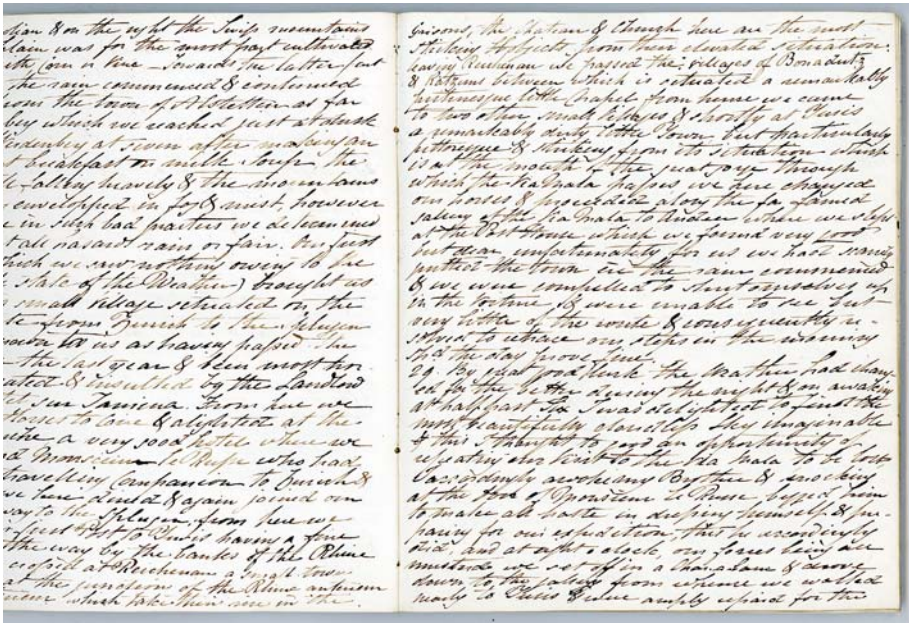 & on the right the Swiss mountains
plain was for the most part cultivated
with Corn & Vine – towards the latter part
the rain commenced & continued
from the town of Altstetten as far
which we reached just at dusk
at seven after making an
breakfast on milk soup, the
falling heavily & the mountains
enveloped in fog & mist, however
in such bad quarters we determined
at all hazard rain or fair. Our first
which we saw nothing owing to the
state of the Weather) brought us
small village situated on the
from Zurich to the Splugen
to us as having passed the
the last year & been most
& insulted by the Landlord
From here we
to Coire & alighted at the
a very good hotel where we
Monsieur le Ruse who had
travelling companion to Zurich &
we here dined & again joined our
way to the Splugen, from here we
having a fine
the way by the banks of the Rhine
crossed at Reichenau a small town
at the junction of the Rhine
which take their rise in the
Grisons, the Chateau & Church here are the most
striking objects from their elevated situation.
leaving Reichenau we passed the villages of Bonadutz
& Katzins between which is situated a remarkably
picturesque little Chapel from hence we came
to two other small villages & shortly at Tusis
a remarkably dirty little town but particularly
pittoresque & striking from its situation which
is at the mouth of the great gorge through
which the Via Mala passes we here changed
our horses & proceeded along the far famed
gallery of the Via Mala to Andeer where we slept
at the Post House which we found very good
but dear unfortunately for us we had scarcely
quitted the town ere the rain commenced
& we were compelled to shut ourselves up
in the voiture, & were unable to see but
very little of the route & consequently re-
solved to retrace our steps in the morning
shd the day prove fine
29. By great good luck the Weather had chang-
ed for the better during the night & on awaking
at half past Six I was delighted to find the
most beautifully cloudless sky imaginable
& this I thought to good an opportunity of
repeating our visit to the Via Mala to be lost
I accordingly awoke my Brother & knocking
at the door of Monsieur le Ruse begged him
to make all haste in dressing himself & pre-
paring for our expedition, this he accordingly
did, and at eight o clock, our forces being all
mustered we set off in a Char a banc & drove
down to the gallery from whence we walked
nearly to Tusis & were amply repaid for the